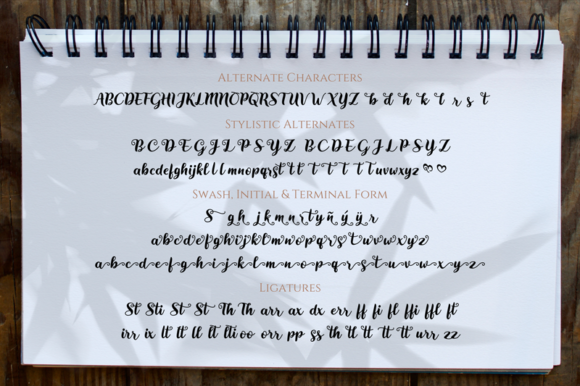 Alternate Characters
ABCDEFGHIJKLMNOPQRSTUVWXYZ b d h k t r s t
Stylistic Alternates
BCDEGJLPSYZ BCDEGJLPSYZ
abcdefghijkl l l mnopqrst tt t t t t t t uvwxyz
Swash, Initial & Terminal Form
S gh jkmnrty ñ ý ÿ r
abcdefghijklmnopqrstuvwxyz
abcdefghijklmnopqrstuvwxyz
Ligatures
St Sti St St Th Th arr ax dx err ff fi fl ffi ffl fl
irr ix tt tt ll lt lti oo orr pp ss th tt tt tt tt urr zz